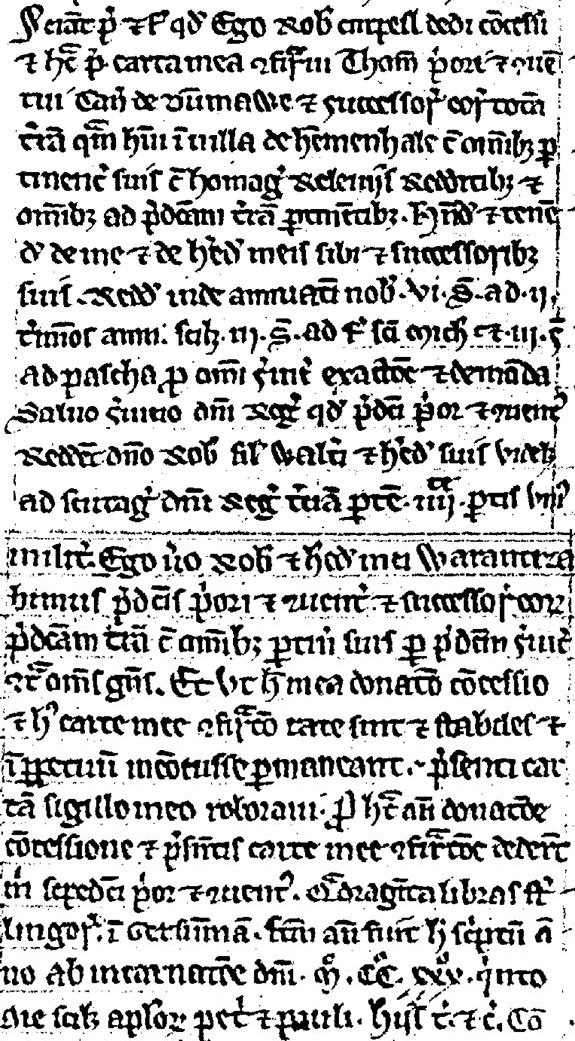 Sciāt p̄ & f' qd' Ego Rob' cmpesl dedi cōcessi
& h̄c p̄. carta mea ꝯfir̄m Thom̄ p̓ori & ꝯuē
tui Cañ de & successoꝝ eoꝝ totā
t̓rā qm̄ hui ī uilla de hemenhale c̄ om̄ibꝫ ꝑ
tinenc̓ suis c̄ homag̓ Releuijs Redd'itibꝫ &
om̄ibꝫ ad p̓dc̄am t̓rā ꝑtinētibꝫ. Hñd' & tenē
d' de me & de h'ed' meis sibi & successoribꝫ
suis. Redd' inde annuati nob'. vi. S̄. ad. ij.
t̓mīos anni. scilꝫ. iij. S̄. ad f' sc̄i mich' & iij. s̄
ad pascha ꝑ om̄i s̓uic̓ exactōe & demāda
Saluo s̓uitio dn̄i Reg' qd' p̓dc̄i p̓or & ꝯuent'
Reddēt dn̄o Rob' fil' Walt̓i & h'ed' suis videlꝫ
ad scutag̓ dn̄i Reg̓ t̓ciā ꝑtē. iiij. ꝑtis vni'
milit̓. Ego u̓o Rob' & h'ed' mei Warantiza
bimus p̓dc̄is p̓ori & ꝯuent̓ & successoꝝ eoꝝ
p̓dc̄am t̓rā c̄ om̄ibꝫ ꝑtiñ suis ꝑ p̓dc̄m s̓uic̓
ꝯt̄ om̄s gn̄s. Et vt h̄ mea donatō cōcessio
& h' carte mee ꝯfirm̄tō rate sint & stabiles &
ī ꝑpetuū incōcusse ꝑmaneant. p̓senti car
tā sigillo meo roboraui. ꝓ h̄c aū donatōe
cōcessione & p̓sentis carte mee ꝯfirm̄tōe dederūt
m̓ sepedc̄i p̓or & ꝯuent'. Q̄dragīta libras st̓
lingoꝝ. ī Gersum̄ā. fc̄m aū fuit h̄ sc̓ptū ā
no ab incarnatōe dn̄i. M̊. CC̊. xxv̊. q̓nto
die scilꝫ aplōꝝ pet̓ & pauli. Hijs t̓. & c̓. Co